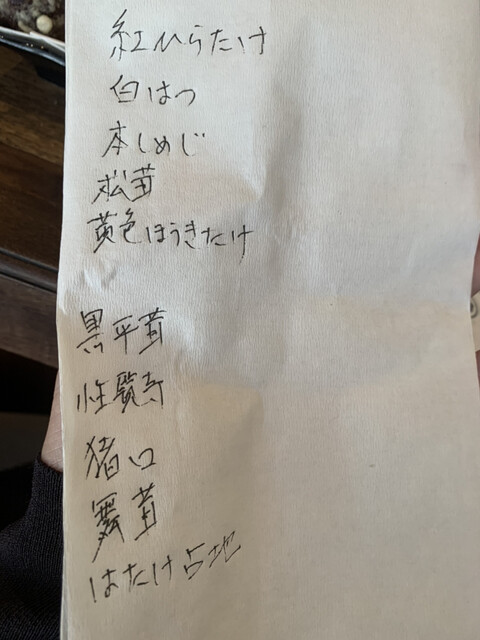 紅ひらたけ
白はつ
本しめじ
松茸
黄色ほうきたけ
黒平茸
性賢寺
猪口
舞茸
はたけ占地